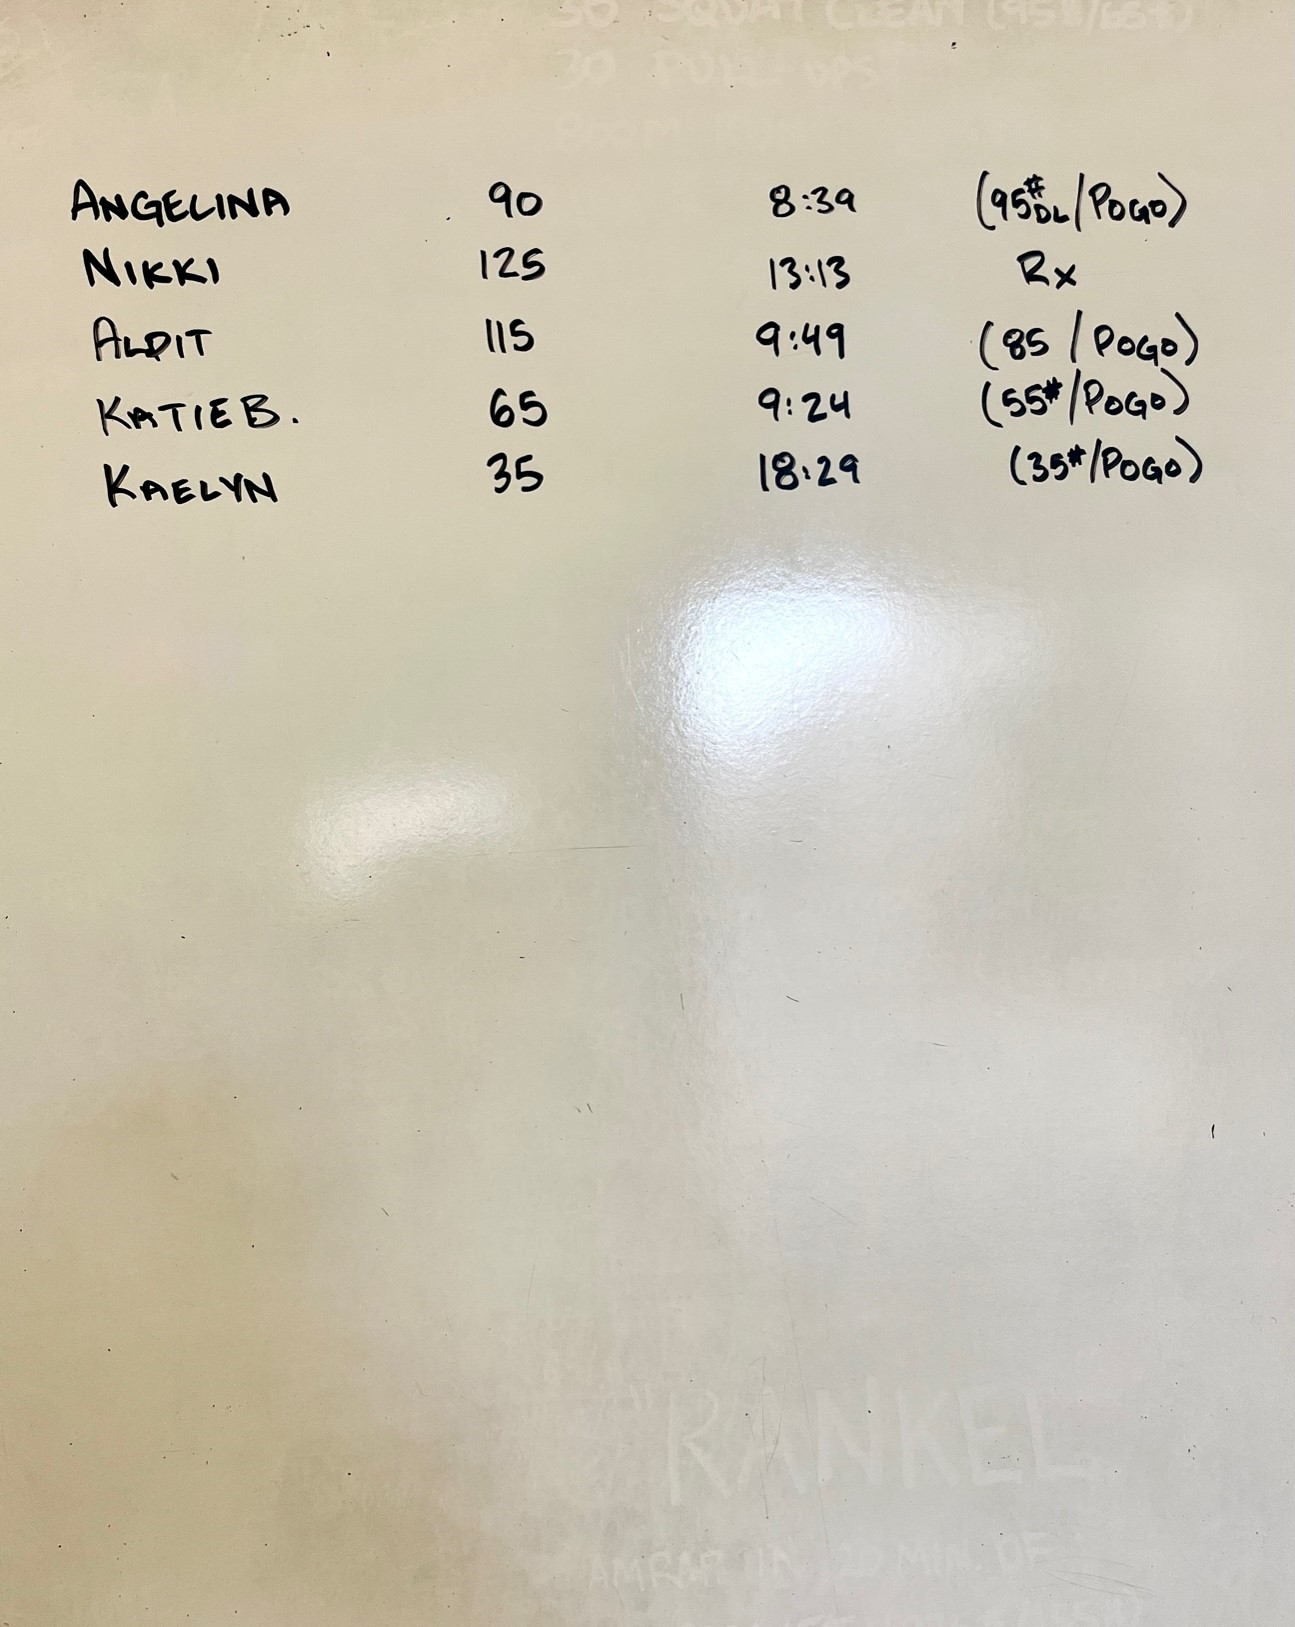 30 SQUAT CLEAN (95#/65#)
30 PULL-UPS
800M
ANGELINA 90 8:39 (95# DL/POGO)
NIKKI 125 13:13 Rx
ALDIT 115 9:49 (85 / POGO)
KATIE B. 65 9:24 (55#/POGO)
KAELYN 35 18:29 (35#/POGO)
"RANKEL
AMRAP IN 20 MIN. OF